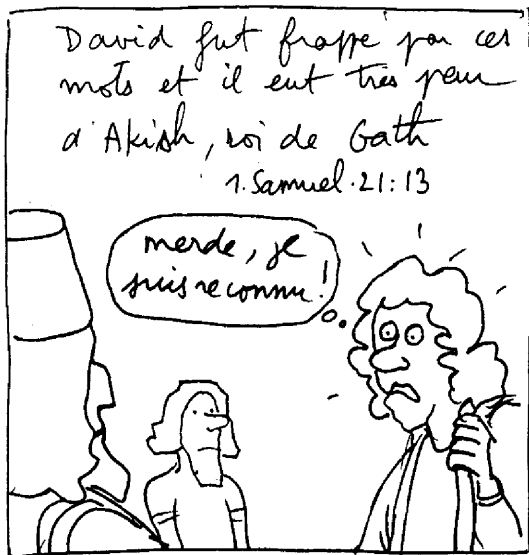 David fut frappé par ces
mots et il eut très peur
d'Akish, roi de Gath
1. Samuel. 21:13
merde, je
suis reconnu!